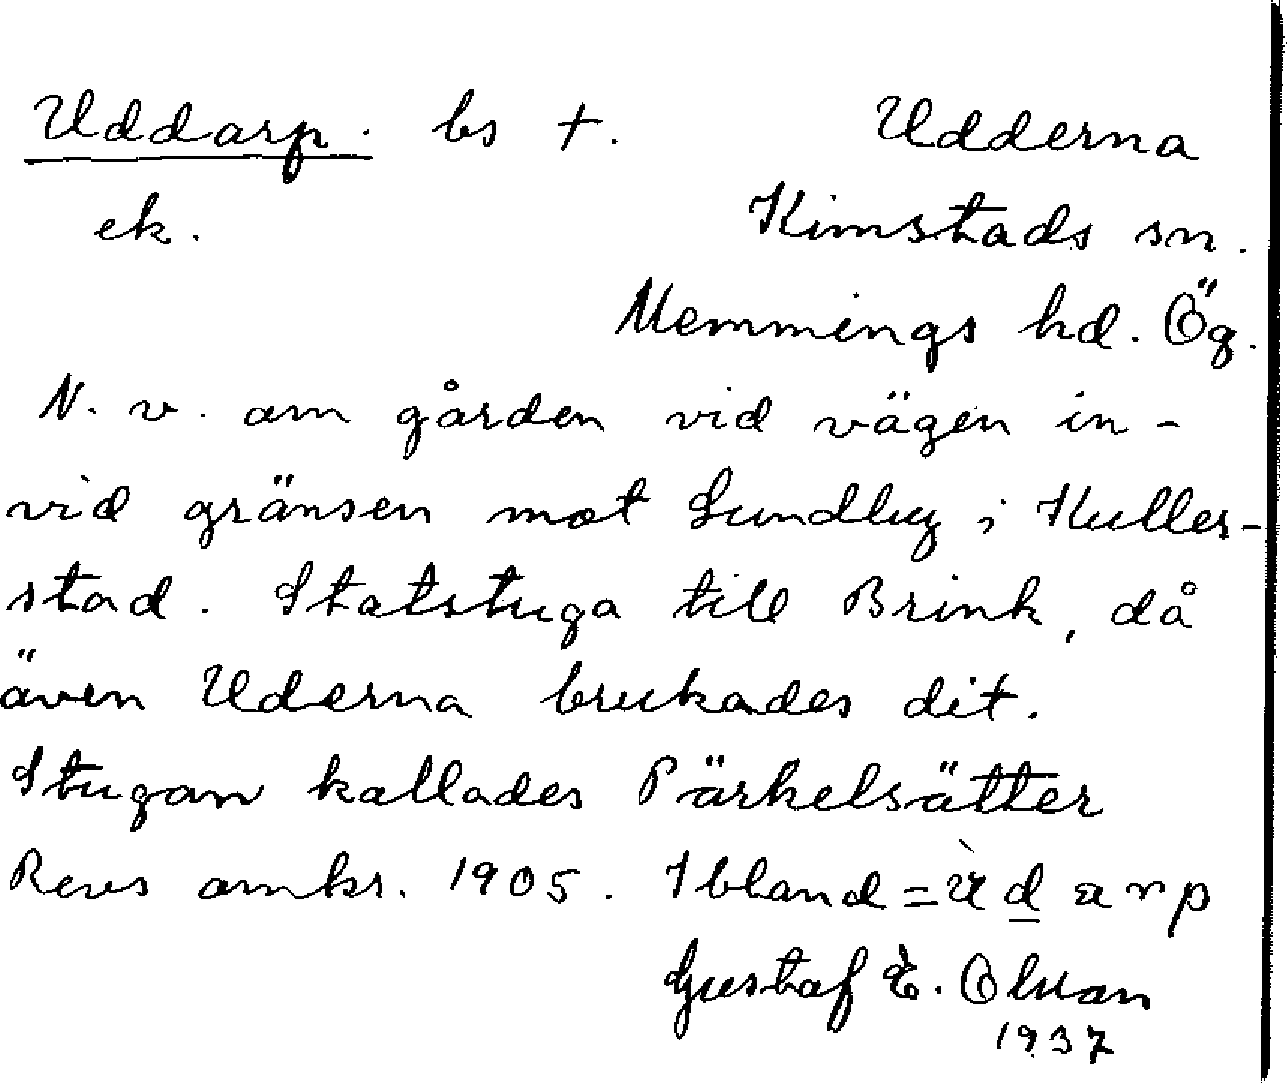 Uddarp. bs +. Udderna
ek. Kimstads sn.
Memmings hd. Ög.
N. v. om gården vid vägen in-
vid gränsen mot Lundby i Kuller-
stad. Statstuga till Brink, då
även Uderna brukades dit.
Stugan kallades Pärkelsätter
Revs omkr. 1905. Ibland = ùdarp
Gustaf E. Olson
1937